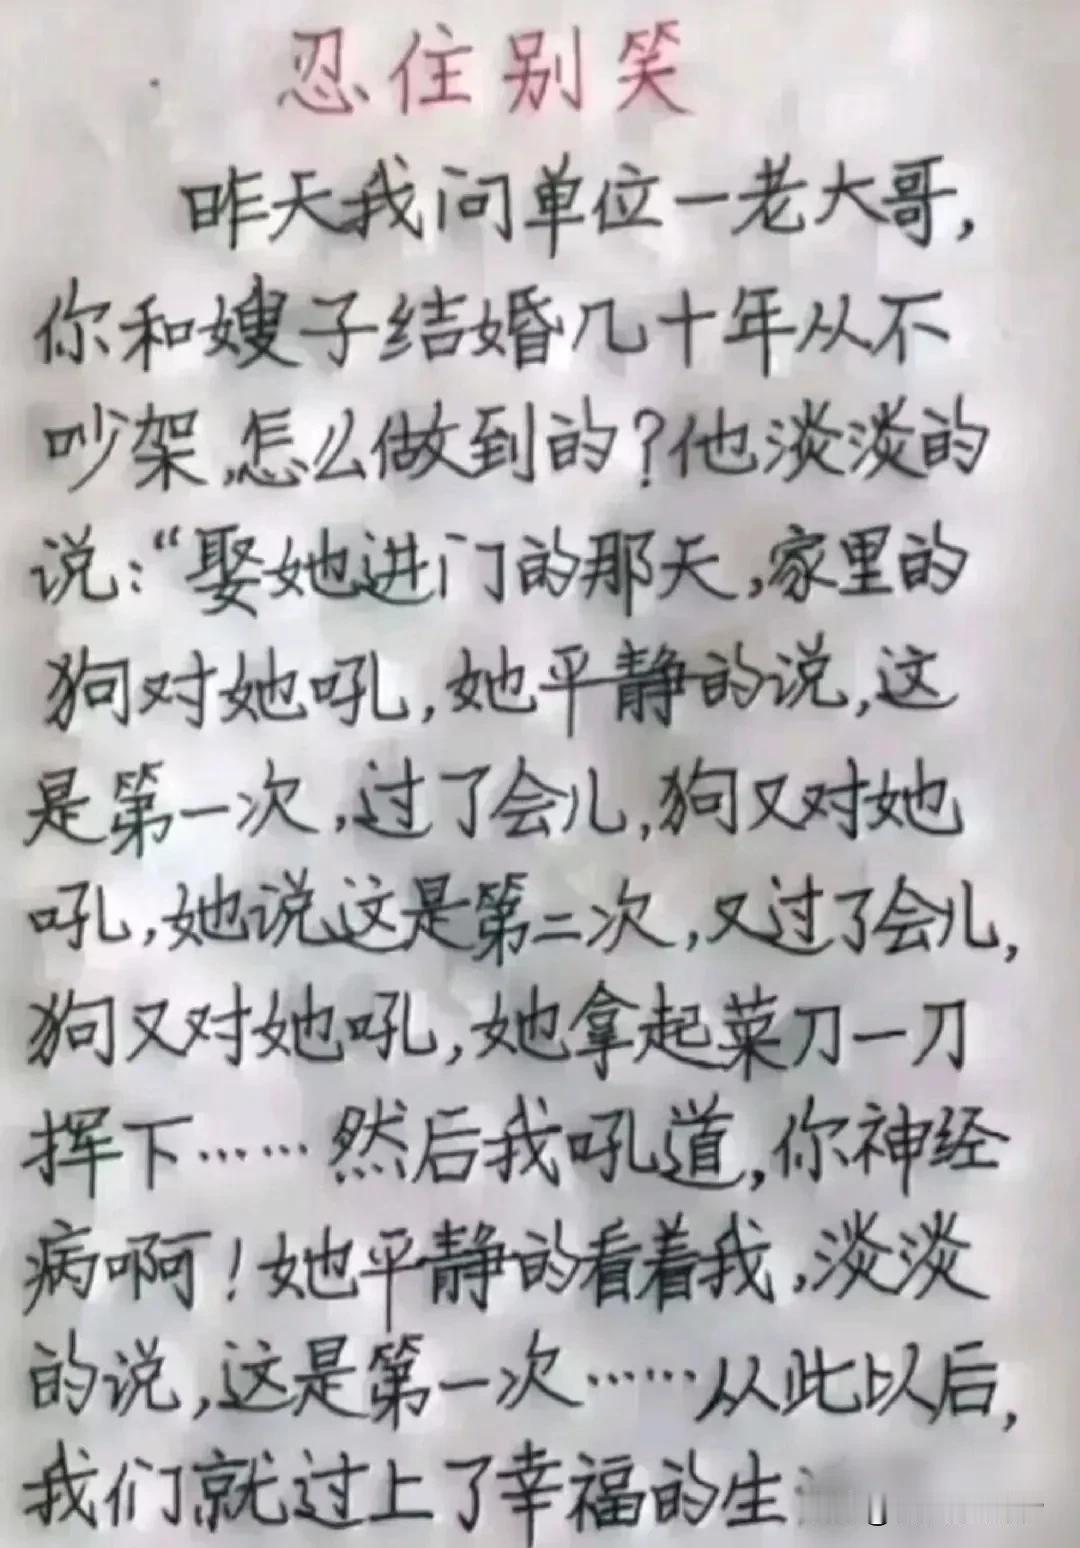 忍住别笑
昨天我问单位一老大哥,
你和嫂子结婚几十年从不
吵架,怎么做到的?他淡淡的
说:“娶她进门的那天,家里的
狗对她吼,她平静的说,这
是第一次,过了会儿,狗又对她
吼,她说这是第二次,又过了会儿,
狗又对她吼,她拿起菜刀一刀
挥下……然后我吼道,你神经
病啊!她平静的看着我,淡淡
的说,这是第一次……从此以后,
我们就过上了幸福的生